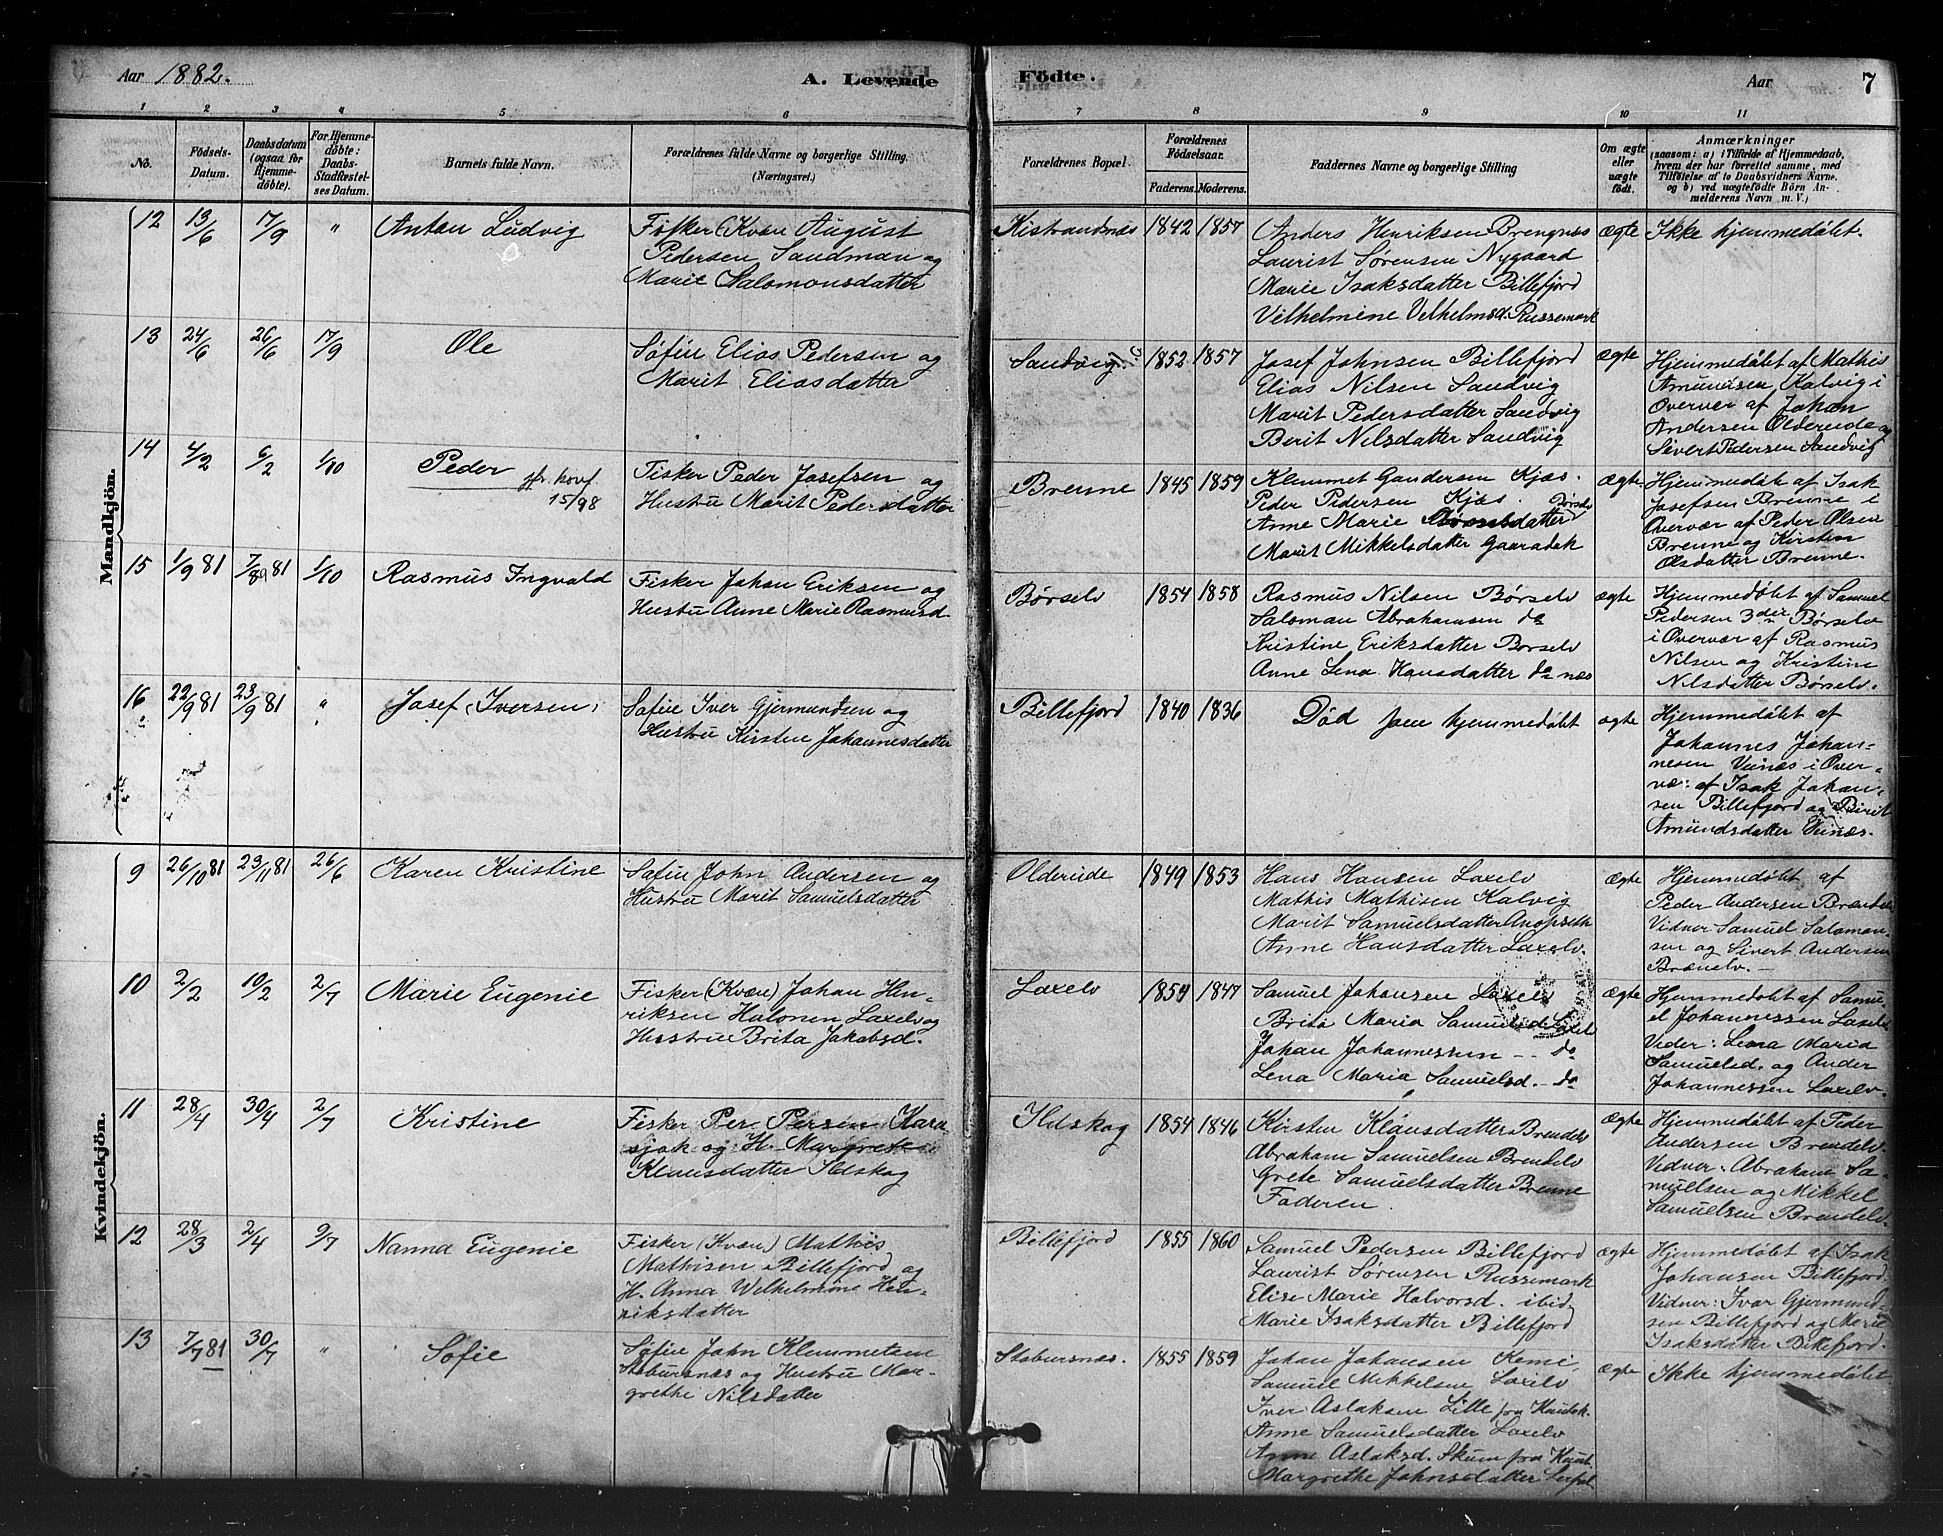 Aar 1882. A. Levende Födte. Aar 7
1 2 3 4 5 6 7 8 9 10 11
Nö.
Födsels-Datum.
Daabsdatum (ogsaa for Hjemme-döbte).
For Hjemme-döbte: Daabs-Stadfæstel-ses Datum.
Barnets fulde Navn.
Forældrenes fulde Navne og borgerlige Stilling. (Næringsvei.)
Forældrenes Bopæl.
Forældrenes Födselsaar.
Faderens. Moderens.
Faddernes Navne og borgerlige Stilling
Om ægte eller uægte födt.
Anmærkninger
(saasom: a) i Tilfælde af Hjemmedaab,
hvem der har forrettet samme, med
Tilföielse af to Daabsvidners Navne,
og b) ved uægtefödte Börn An-
melderens Navn m. V.)
Mandkjön.
12 13/6 17/9 " Anton Ludvig
Fisker (Kvæn August
Pedersen Sandman og
Marie Salomonsdatter
Kistrandnæs 1842 1857
Anders Henriksen Brengnæs
Laurist Sørensen Nygaard
Marie Isaksdatter Billefjord
Vilhelmine Velhelmsd. Russemark
ægte
Ikke hjemmedøbt.
13 24/6 26/6 17/9 Ole
Søfin Elias Pedersen og
Marit Eliasdatter
Sandvig 1852 1857
Josef Johnsen Billefjord
Elias Nilsen Sandvig
Marit Pedersdatter Sandvig
Berit Nilsdatter Sandvig
ægte
Hjemmedøbt af Mathis
Amundsen Kalvig i
Overvær af Johan
Andersen Oldereide og
Sivert Pedersen Sandvig
14 4/2 6/2 1/10 Peder
15/98
Fisker Peder Josefsen og
Hustru Marit Pedersdatter
Brenne 1845 1859
Klemmet Gundersen Kjæs.
Peder Pedersen Kjæs.
Anne Marie Børselv
Marit Mikkelsdatter Gaaradak
ægte
Hjemmedøbt af Isak
Josefsen Brenne i
Overvær af Peder Olsen
Brenne og Kirsten
Olsdatter Brenne.
15 1/9 81 7/9 81 1/10 Rasmus Ingvald
Fisker Johan Eriksen og
Hustru Anne Marie Rasmusd.
Børselv 1854 1858
Rasmus Nilsen Børselv
Salomon Abrahamsen do
Kristine Eriksdatter Børselv
Anne Lena Hansdatter do næs
ægte
Hjemmedøbt af Samuel
Pedersen 3die Børselv
i Overvær af Rasmus
Nilsen og Kristine
Nilsdatter Børselv.
16 22/9 81 23/9 81 " Josef (Iversen)
Søfin Iver Gjermundsen og
Hustru Kirsten Johannesdatter
Billefjord 1840 1836
Død som hjemmedøbt
ægte
Hjemmedøbt af
Johannes Johan-
nesen Veinæs i Over-
væ: af Isak Johan-
sen Billefjord og Birit
Amundsdatter Veinæs.
Kvindekjön.
9 26/10 81 23/11 81 26/6 Karen Kristine
Søfin John Andersen og
Hustru Marit Samuelsdatter
Oldereide 1849 1853
Hans Hansen Laxelv
Mathis Mathisen Kalvig
Marit Samuelsdatter
Anne Hansdatter Laxelv.
ægte
Hjemmedøbt af
Peder Andersen Brændelv
Vidner Samuel Salomon-
sen og Sivert Andersen
10 2/2 10/2 2/7 Marie Eugenie
Fisker (Kvæn) Johan Hen-
riksen Halonen Laxelv og
Hustru Brita Jakobsd.
Laxelv 1854 1847
Samuel Johansen Laxelv
Brita Maria Samuelsd.
Johan Johannessen -- do
Lena Maria Samuelsd. - do
ægte
Hjemmedøbt af Samu-
el Johannessen Laxelv
Vidner: Lena Maria
Samuelsd. og Ander
Johannessen Laxelv.
11 28/4 30/4 2/7 Kristine
Fisker Per Persen Kara-
sjok og H. Margrete
Klausdatter Ildskog
Ildskog 1854 1846
Kirsten Klausdatter Brendelv
Abraham Samuelsen Brendelv
Grete Samuelsdatter Brenne
Faderen.
ægte
Hjemmedøbt af Peder
Andersen Brendelv.
Vidner: Abraham Sa-
muelsen og Mikkel
Samuelsen Brendelv.
12 28/3 2/4 9/7 Nanna Eugenie
Fisker (Kvæn) Mathis
Mathisen Billefjord og
H. Anna Wilhelmine Hen-
riksdatter
Billefjord 1855 1860
Samuel Pedersen Billefjord
Laurist Sørensen Russemark
Elise Marie Halvorsd. ibid
Marie Isaksdatter Billefjord
ægte
Hjemmedøbt af Isak
Johansen Billefjord.
Vidner: Ivar Gjermund-
sen Billefjord og Marie
Isaksdatter Billefjord.
13 7/7 81 30/7 " Sofie
Søfin John Klemmetsen
Stabursnæs og Hustru Mar-
grethe Nilsdatter
Stabursnæs. 1855 1859
Johan Johansen Kemi,
Samuel Mikkelsen Laxelv
Iver Aslaksen Lille fra Kautok.
Anne Samuelsdatter Laxelv
Anne Aslaksd. Skum fra Kaut.
Margrethe Johnsdatter
ægte
Ikke hjemmedøbt